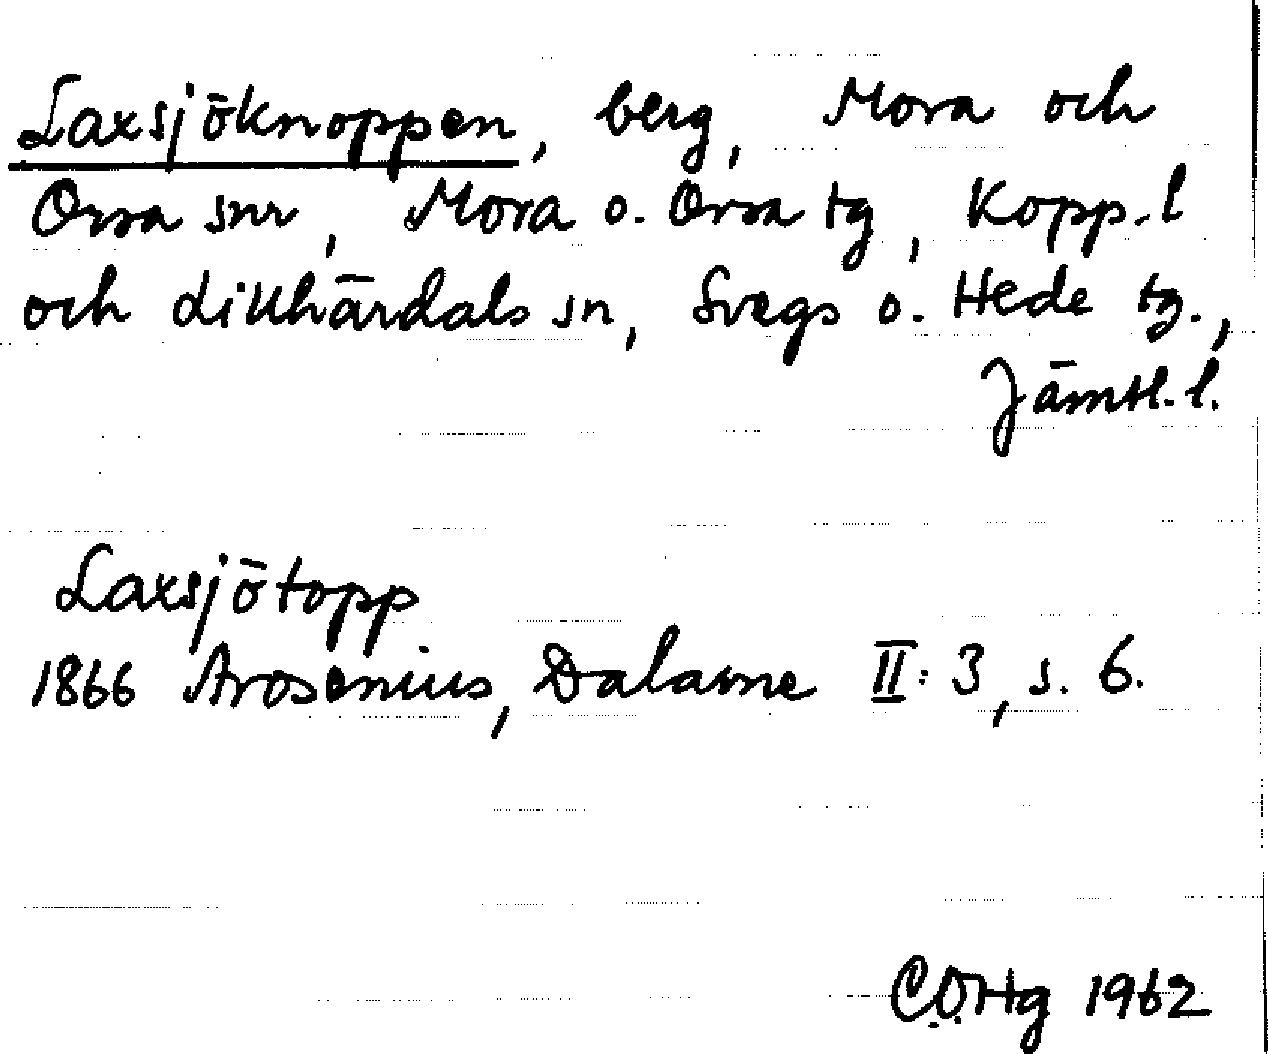 Laxsjöknoppen, berg, Mora och
Orsa snr, Mora o. Orsa tg, Kopp.l
och Lillhärdals sn, Svegs o. Hede tg.,
Jämtl. l.
Laxsjötopp
1866 Arosenius, Dalarne II:3, s. 6.
C.O.Hg 1962